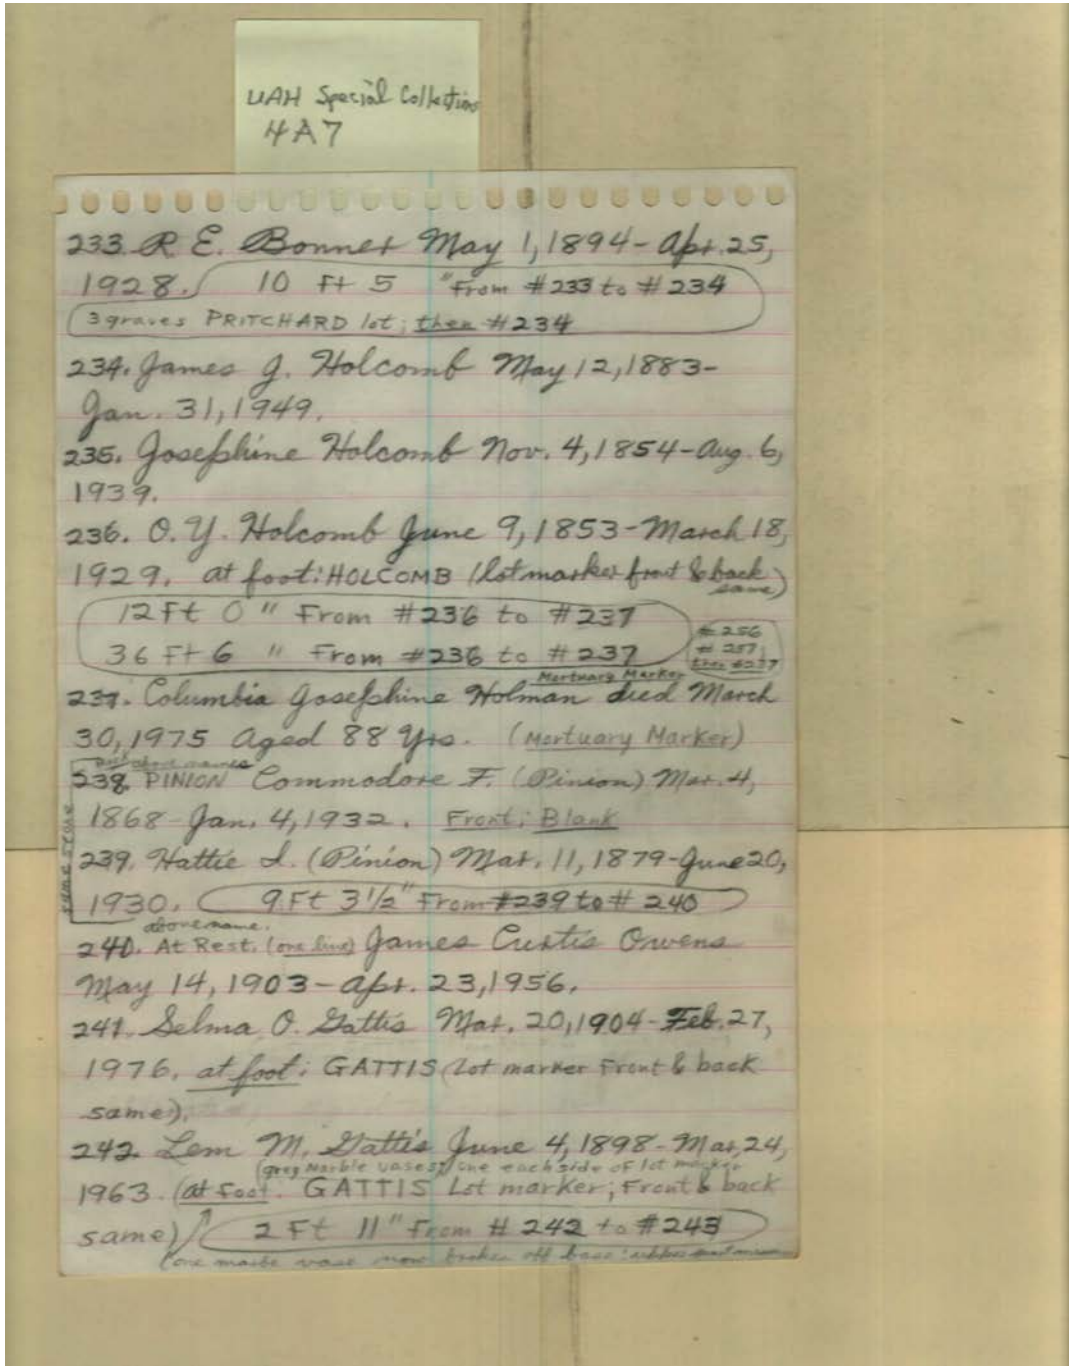 UAH Special Collections
4A7
233. R E. Bonner May 1, 1894 - Apr. 25,
1928. 10 Ft 5 " From #233 to #234
3 graves PRITCHARD lot; then #234
234. James J. Holcomb May 12, 1883 -
Jan. 31, 1949.
235. Josephine Holcomb Nov. 4, 1854 - Aug. 6,
1939.
236. O. Y. Holcomb June 9, 1853 - March 18,
1929. at foot: HOLCOMB (lot marker front & back
same)
12 Ft 0 " From #236 to #237
36 Ft 6 " From #236 to #237
#256
#257;
then #237
Mortuary Marker
237. Columbia Josephine Holman died March
30, 1975 Aged 88 Yrs. (Mortuary Marker)
above names
238. PINION Commodore F. (Pinion) Mar. 4,
1868 - Jan. 4, 1932. Front; Blank
same stone
239. Hattie I. (Pinion) Mar. 11, 1879 - June 20,
1930. 9 Ft 3 1/2" From #239 to # 240
above name.
240. At Rest. (one line) James Curtis Owens
May 14, 1903 - Apr. 23, 1956.
241. Selma O. Gattis Mar. 20, 1904 - Feb. 27,
1976. at foot: GATTIS (Lot marker Front & back
same).
242. Lem M. Gattis June 4, 1898 - Mar. 24,
(grey Marble vases, one each side of lot marker
1963. (at foot. GATTIS Lot marker; Front & back
same) 2 Ft 11" From # 242 to #243
(one marble vase now broken off base: